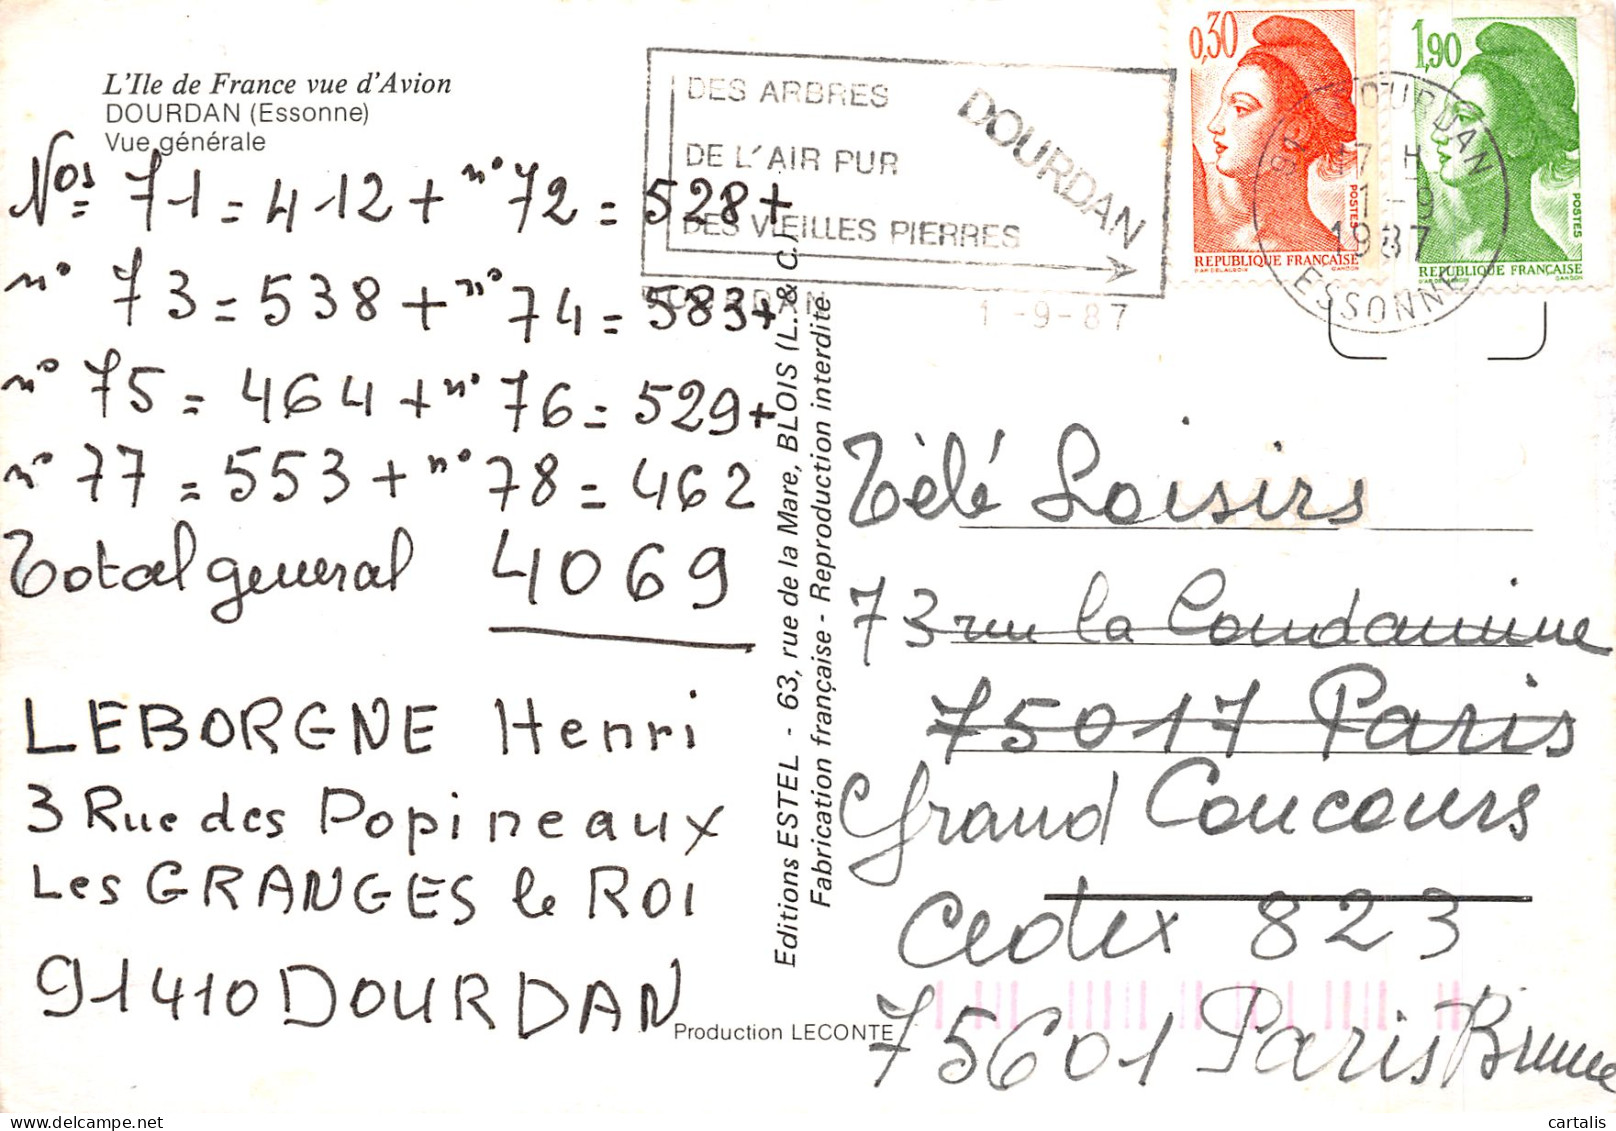 L'Ile de France vue d'Avion
DOURDAN (Essonne)
Vue générale
Nos 71 = 412 + n° 72 = 528 +
n° 73 = 538 + n° 74 = 583 +
n° 75 = 464 + n° 76 = 529 +
n° 77 = 553 + n° 78 = 462
Total general 4069
LEBORGNE Henri
3 Rue des Popineaux
Les GRANGES le ROI
91410 DOURDAN
Production LECONTE
Editions ESTEL - 63, rue de la Mare, BLOIS (L. & C.)
Fabrication française - Reproduction interdite
DES ARBRES
DE L'AIR PUR
DES VIEILLES PIERRES
DOURDAN
DOURDAN
1 -9-87
0,30
POSTES
REPUBLIQUE FRANÇAISE
1,90
POSTES
REPUBLIQUE FRANÇAISE
91 DOURDAN
17 H
1 -9
1987
ESSONNE
Télé Loisirs
73 rue la Condamine
75017 Paris
Grand Concours
Cedex 823
75601 Paris Brune
cartalis